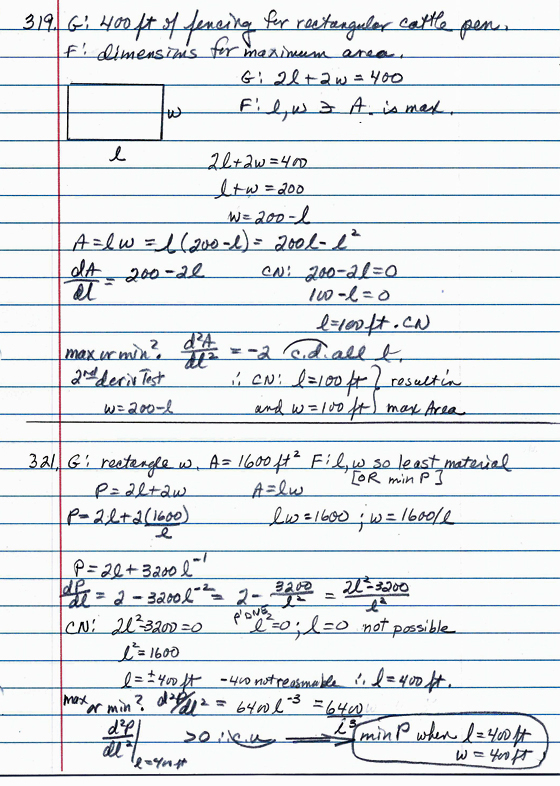 319. G: 400 ft of fencing for rectangular cattle pen.
F: dimensions for maximum area.
G: 2l + 2w = 400
w F: l, w ∋ A. is max.
l
2l + 2w = 400
l + w = 200
w = 200 - l
A = lw = l(200 - l) = 200l - l²
dA/dl = 200 - 2l CN: 200 - 2l = 0
100 - l = 0
l = 100 ft. CN
max or min? d²A/dl² = -2 c.d. all l.
2nd deriv Test ∴ CN: l = 100 ft } result in
w = 200 - l and w = 100 ft } max Area
321. G: rectangle w. A = 1600 ft² F: l, w so least material
[OR min P]
P = 2l + 2w A = lw
P = 2l + 2(1600)/l lw = 1600 ; w = 1600/l
P = 2l + 3200 l⁻¹
dP/dl = 2 - 3200 l⁻² = 2 - 3200/l² = 2l² - 3200/l²
P' DNE
CN: 2l² - 3200 = 0 l² = 0 ; l = 0 not possible
l² = 1600
l = ±400 ft -400 not reasonable ∴ l = 400 ft.
max or min? d²P/dl² = 6400 l⁻³ = 6400/l³
d²P/dl² | l = 400 ft > 0 ∴ c.u. → min P when l = 400 ft
w = 400 ft